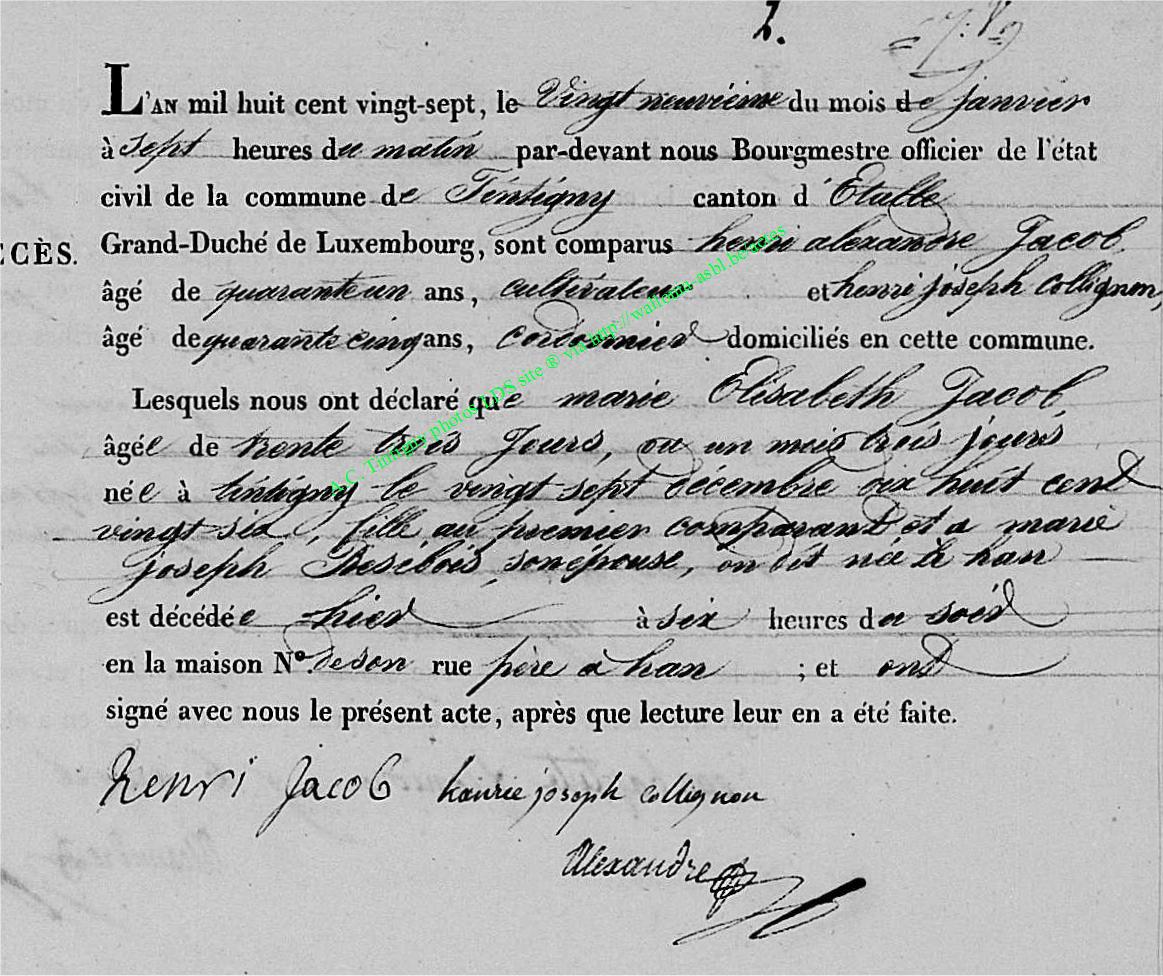 2.
L'AN mil huit cent vingt-sept, le Vingt neuvième du mois de janvier
à sept heures du matin par-devant nous Bourgmestre officier de l'état
civil de la commune de Tintigny canton d'Etalle
CÈS. Grand-Duché de Luxembourg, sont comparus henri alexandre Jacob
âgé de quarante un ans, cultivateur et henri joseph Collignon,
âgé de quarante cinq ans, cordonnier domiciliés en cette commune.
Lesquels nous ont déclaré que marie Elisabeth Jacob,
âgée de trente trois Jours, ou un mois trois jours
née à tintigny le vingt sept décembre dix huit cent
vingt six, fille au premier comparant et a marie
joseph son épouse, on dit née à han
est décédée hier à six heures du soir
en la maison N° de son rue père a han ; et ont
signé avec nous le présent acte, après que lecture leur en a été faite.
henri Jacob hanrie joseph collignon
Alexandre
A.C. Tintigny photos LDS site ® via http://waltema-asbl.be/actes